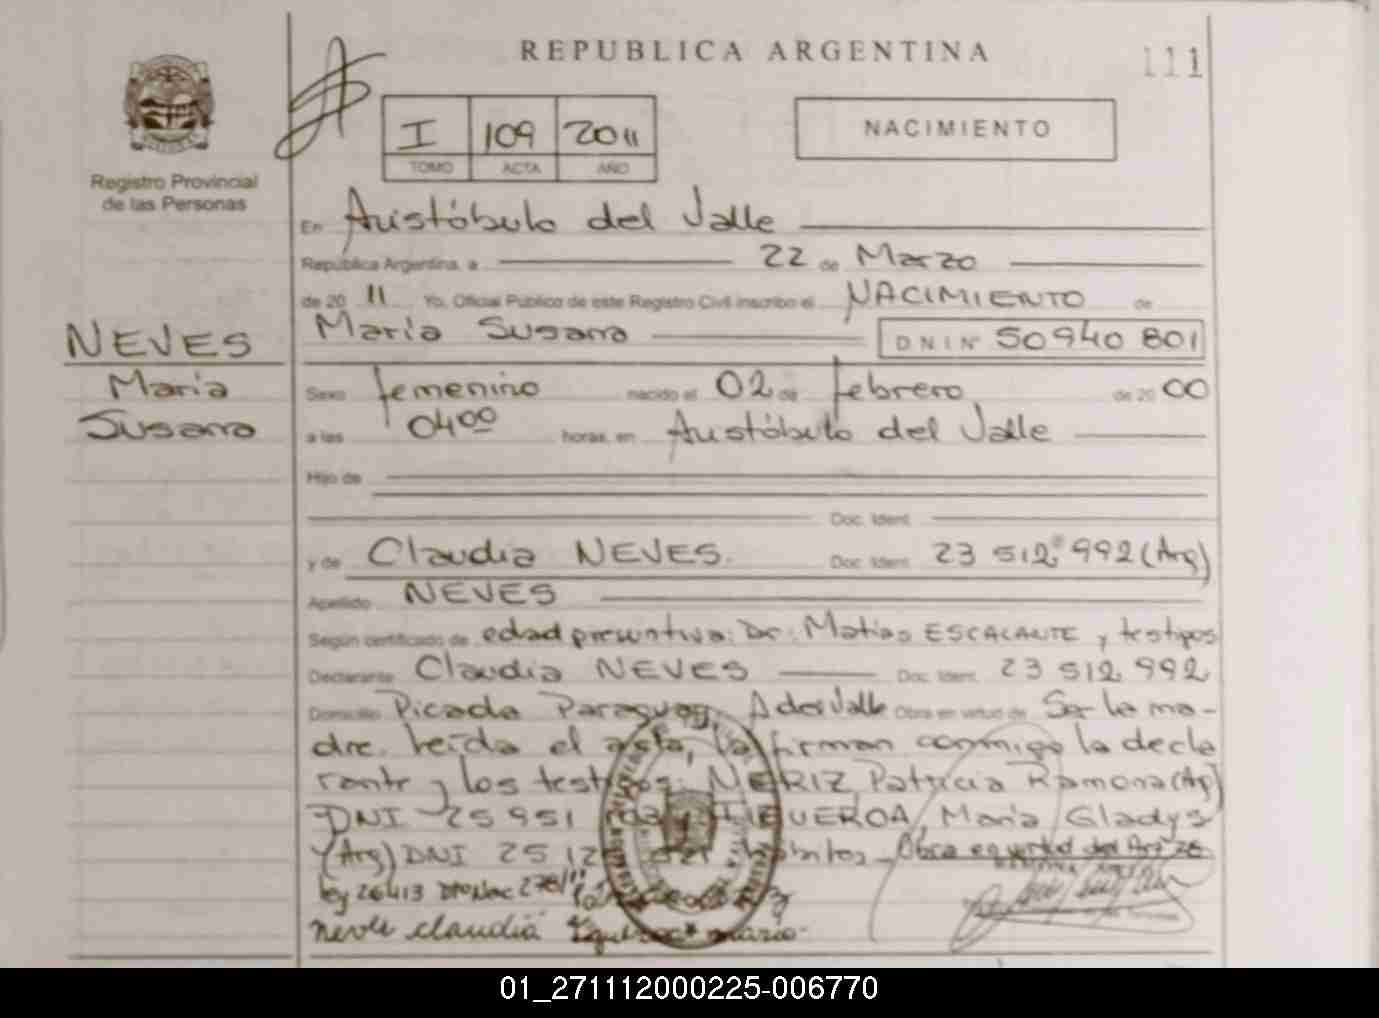 REPUBLICA ARGENTINA
111
Registro Provincial
de las Personas
I 109 2011
TOMO ACTA AÑO
NACIMIENTO
En Aristóbulo del Valle
República Argentina, a 22 de Marzo
de 20 11 Yo, Oficial Público de este Registro Civil inscribo el NACIMIENTO de
María Susana DNI Nº 50940 801
NEVES
María
Susana
Sexo femenino nacido el 02 de febrero de 20 00
a las 04 00 horas, en Aristóbulo del Valle
Hijo de
Doc. Ident.
y de Claudia NEVES. Doc. Ident. 23 512 992 (Arg)
Apellido NEVES
Según certificado de edad presuntiva: Dr: Matías ESCALANTE y testigos
Declarante Claudia NEVES Doc. Ident. 23 512 992
Domicilio Picada Paraguay, A del Valle Obra en virtud de Ser la ma-
dre. Leída el acta, la firman conmigo la decla
rante y los testigos: NERIZ Patricia Ramona (Arg)
DNI 25 951 y FIGUEROA, María Gladys
(Arg) DNI 25 Obra en virtud del Art 28
ley 26413
neves claudia
01_271112000225-006770